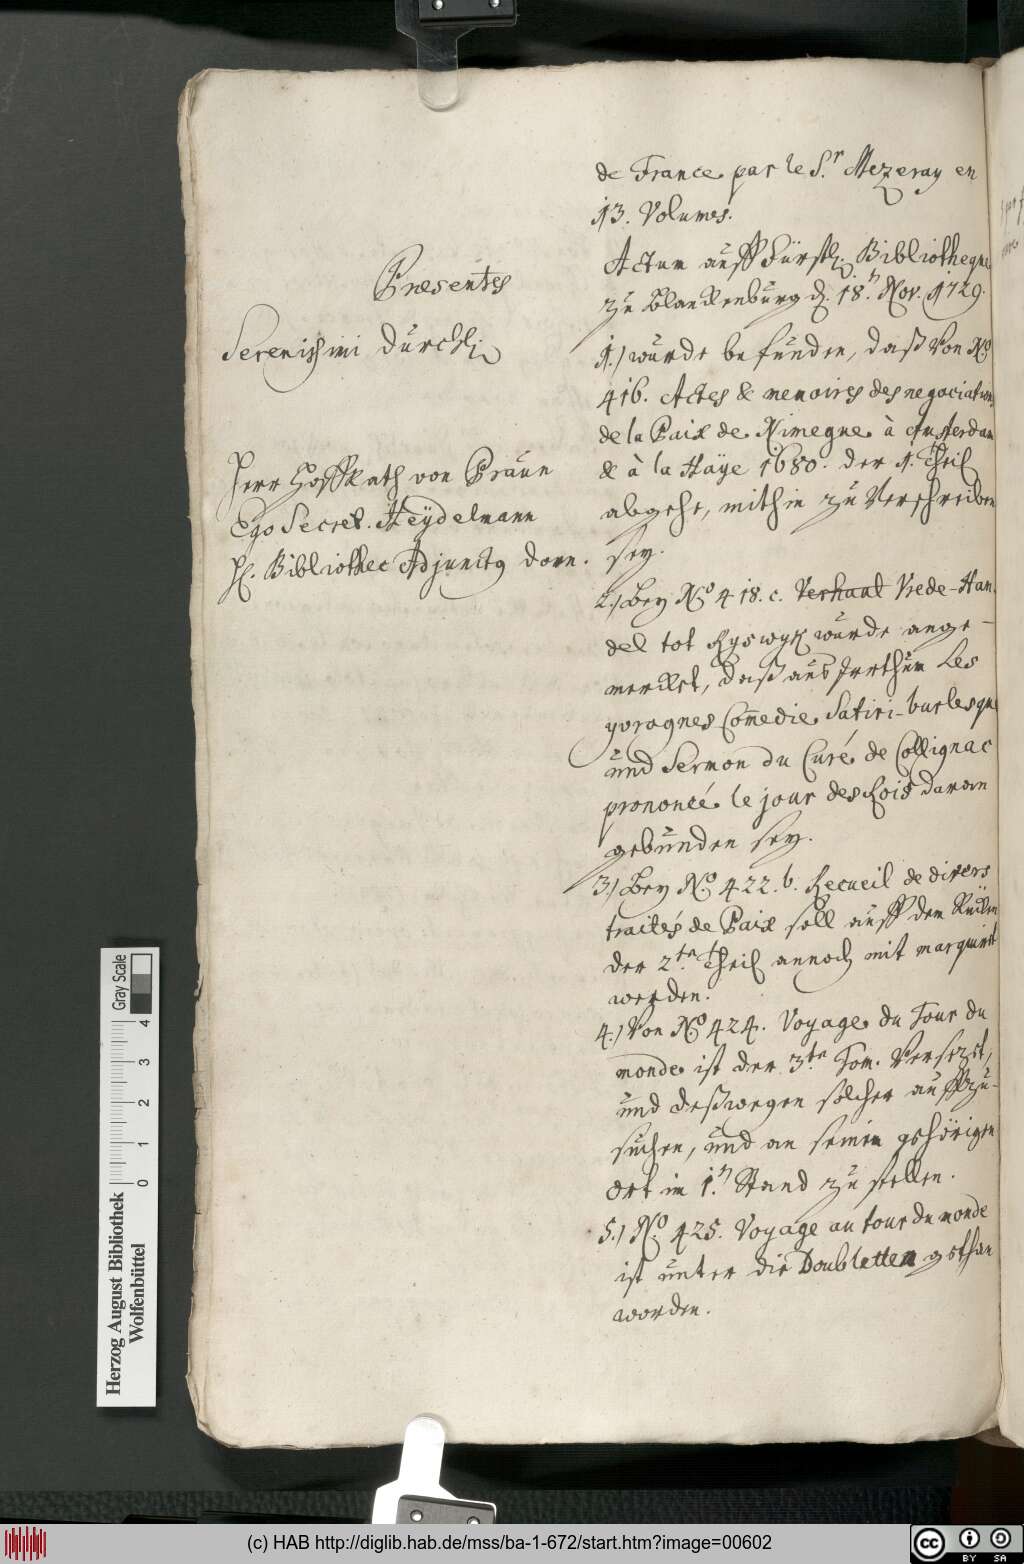 de France par le S.r Mezeray en
13. Volumes.
Actum auff Fürstl. Bibliotheque
zu Blanckenburg d. 18.n Nov. 1729.
Præsentes
Serenissimi Dürchl.
Herr Hoffrath von Praün
Ego Secret. Heÿdelmann
H. Bibliothec Adjunctq Dorn.
1.) wurde befunden, daß von No
416. Actes & memoires des negociations
de la Paix de Nimegue à Amsterdam
& à la Haÿe 1680. der 1. Theil
abgehe, mithin zu Verschreiben
sey.
2.) Bey No 418. c. Verhaal Vrede-Han-
del tot Ryswyk wurde ange-
merckt, daß aus Irrthum Les
yvrognes Comedie Satiri-burlesque
und Sermon du Curé de Collignac
prononcé le jour des Rois daran
gebunden sey.
3.) Bey No. 422. b. Recueil de divers
traités de Paix soll auff dem Rücken
der 2.te Theil annoch mit marquirt
werden.
4.) Von No 424. Voyage du Tour du
monde ist der 3.te Tom. Versezt,
und deßwegen solcher auffzu-
suchen, und an seinen gehörigen
Ort im 1.n Stand zu stellen.
5.) No. 425. Voyage au tour du monde
ist unter die Doubletten gethan
worden.
Gray Scale
4 3 2 1 0
Herzog August Bibliothek
Wolfenbüttel
(c) HAB http://diglib.hab.de/mss/ba-1-672/start.htm?image=00602
cc BY SA